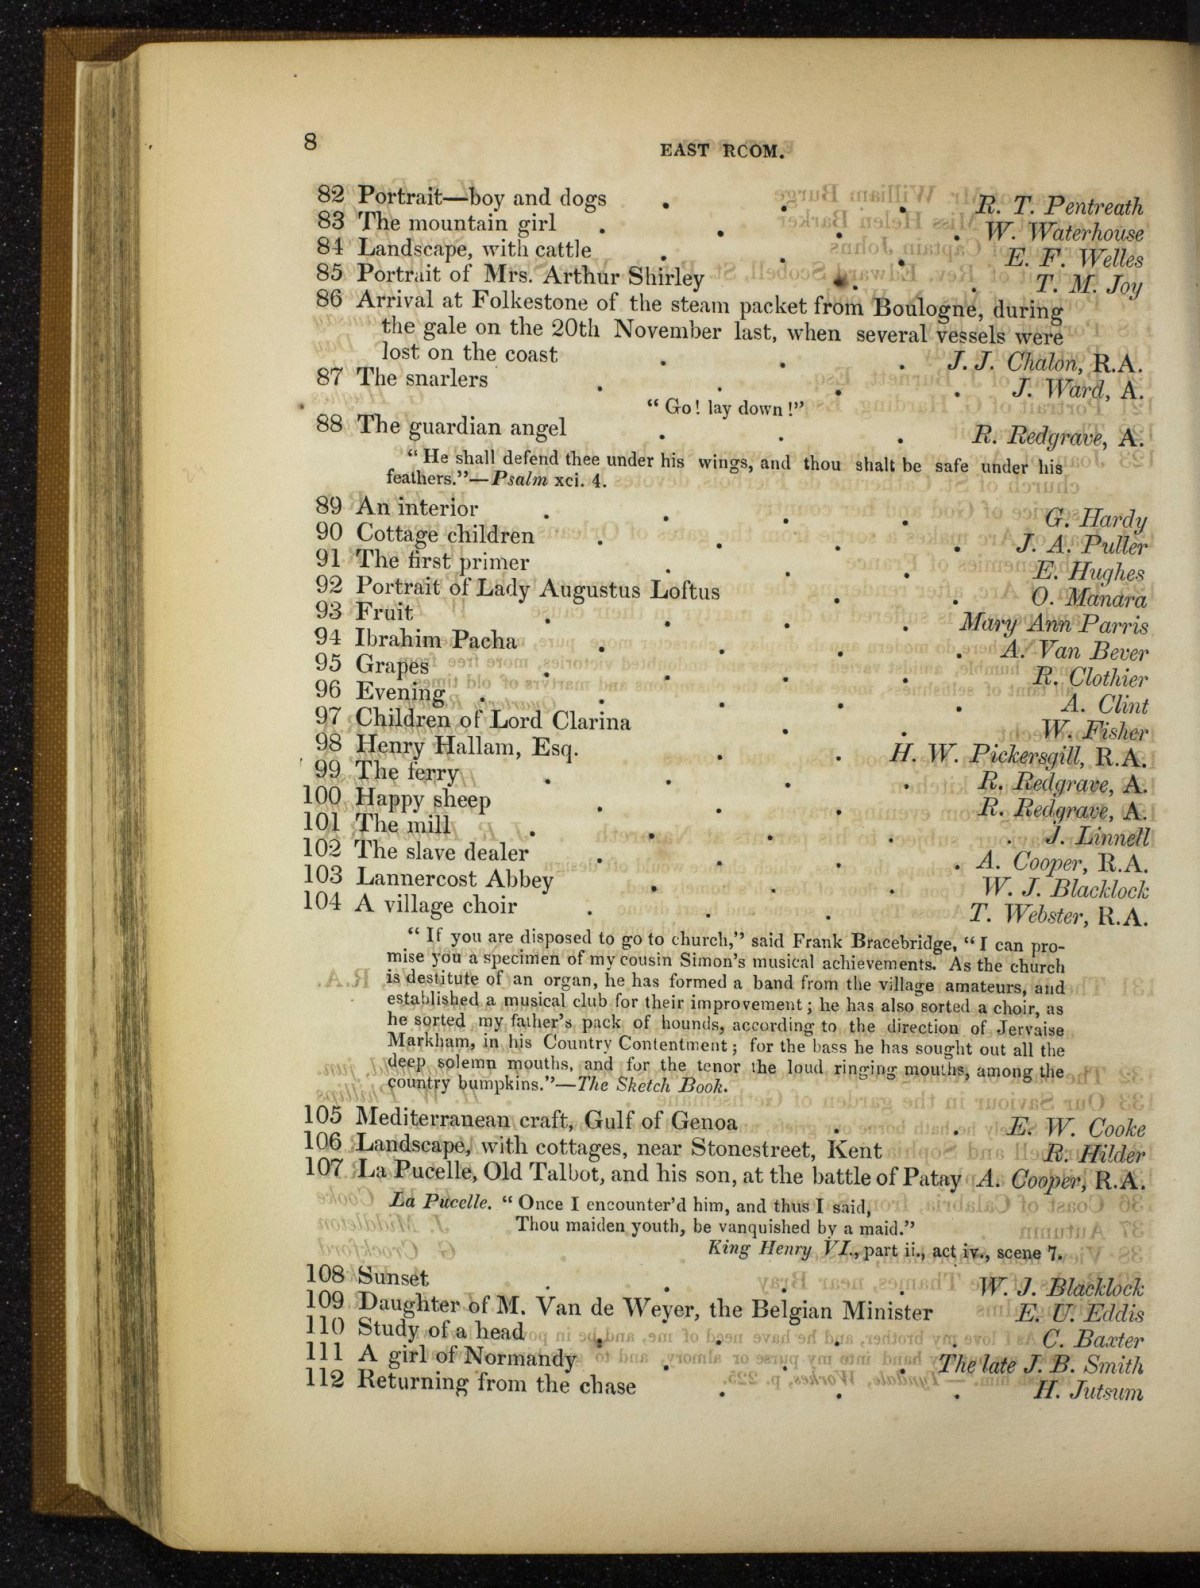 8
EAST RCOM.
82 Portrait—boy and dogs . . . R. T. Pentreath
83 The mountain girl . . . . W. Waterhouse
84 Landscape, with cattle . . . E. F. Welles
85 Portrait of Mrs. Arthur Shirley . . T. M. Joy
86 Arrival at Folkestone of the steam packet from Boulogne, during
the gale on the 20th November last, when several vessels were
lost on the coast . . . J. J. Chalon, R.A.
87 The snarlers . . . . J. Ward, A.
“ Go! lay down!”
88 The guardian angel . . . R. Redgrave, A.
“ He shall defend thee under his wings, and thou shalt be safe under his
feathers.”—Psalm xci. 4.
89 An interior . . . . G. Hardy
90 Cottage children . . . . J. A. Puller
91 The first primer . . . E. Hughes
92 Portrait of Lady Augustus Loftus . . O. Manara
93 Fruit . . . . Mary Ann Parris
94 Ibrahim Pacha . . . . A. Van Bever
95 Grapes . . . . R. Clothier
96 Evening . . . . . A. Clint
97 Children of Lord Clarina . . W. Fisher
98 Henry Hallam, Esq. . . H. W. Pickersgill, R.A.
99 The ferry . . . . R. Redgrave, A.
100 Happy sheep . . . R. Redgrave, A.
101 The mill . . . . . J. Linnell
102 The slave dealer . . . . A. Cooper, R.A.
103 Lannercost Abbey . . . W. J. Blacklock
104 A village choir . . . T. Webster, R.A.
“ If you are disposed to go to church,” said Frank Bracebridge, “ I can pro-
mise you a specimen of my cousin Simon’s musical achievements. As the church
is destitute of an organ, he has formed a band from the village amateurs, and
established a musical club for their improvement; he has also sorted a choir, as
he sorted my father’s pack of hounds, according to the direction of Jervaise
Markham, in his Country Contentment; for the bass he has sought out all the
deep solemn mouths, and for the tenor the loud ringing mouths, among the
country bumpkins.”—The Sketch Book.
105 Mediterranean craft, Gulf of Genoa . . E. W. Cooke
106 Landscape, with cottages, near Stonestreet, Kent R. Hilder
107 La Pucelle, Old Talbot, and his son, at the battle of Patay A. Cooper, R.A.
La Pucelle. “ Once I encounter’d him, and thus I said,
Thou maiden youth, be vanquished by a maid.”
King Henry VI., part ii., act iv., scene 7.
108 Sunset . . . . W. J. Blacklock
109 Daughter of M. Van de Weyer, the Belgian Minister E. U. Eddis
110 Study of a head . . . . C. Baxter
111 A girl of Normandy . . . The late J. B. Smith
112 Returning from the chase . . . H. Jutsum